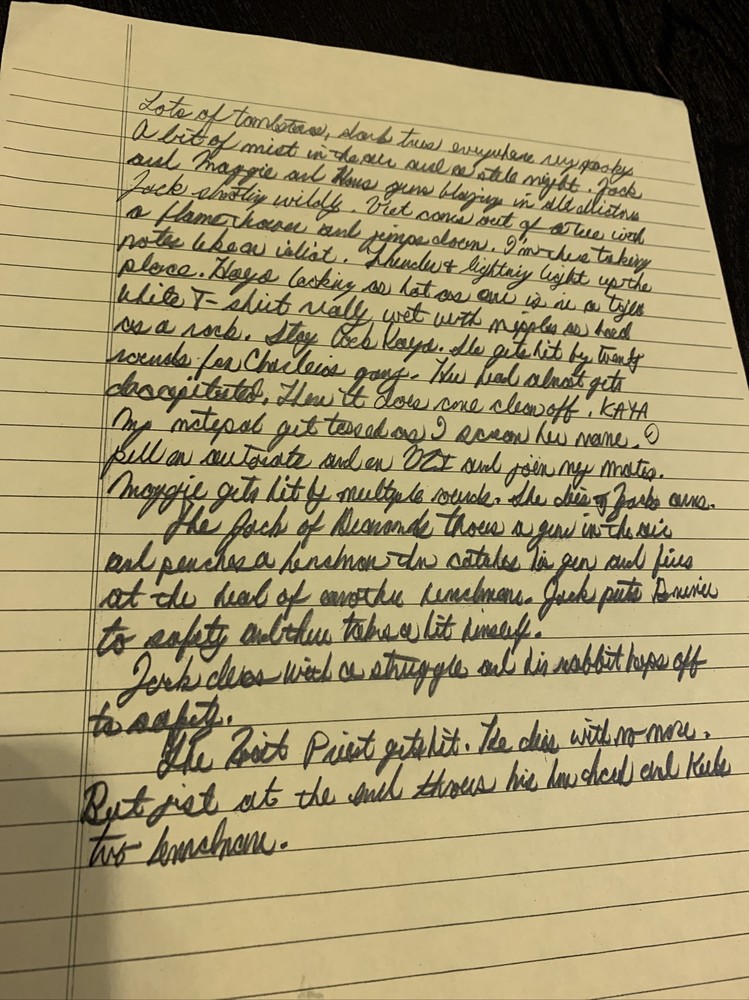 Lots of tombstones, dark trees everywhere very spooky
A bit of mist in the air and a stale night. Jack
and Maggie and Hans guns blazing in all
Jack shooting wildly. Viet comes out of a tree with
a flame thrower and jumps down. I'm there taking
notes like an idiot. Thunder & lightning light up the
place. Kaya looking as hot as ever is in a
White T-shirt really wet with nipples as hard
as a rock. Stay Back Kaya. She gets hit by twenty
rounds for Charlie's gang. Her head almost gets
decapitated. Then it does come clean off. KAYA
My notepad get tossed as I scream her name. I
pull an automatic and an and join my mates.
Maggie gets hit by multiple rounds. She dies Jacks arms.
The Jack of Diamonds throws a gun in the air
and punches a henchman then catches his gun and fires
at the head of another henchman. Jack puts
to safety and then takes a hit himself.
Jack dies with a struggle and his rabbit hops off
to safety.
The Priest gets hit. He dies with no more.
But just at the end throws his and kills
two henchmen.